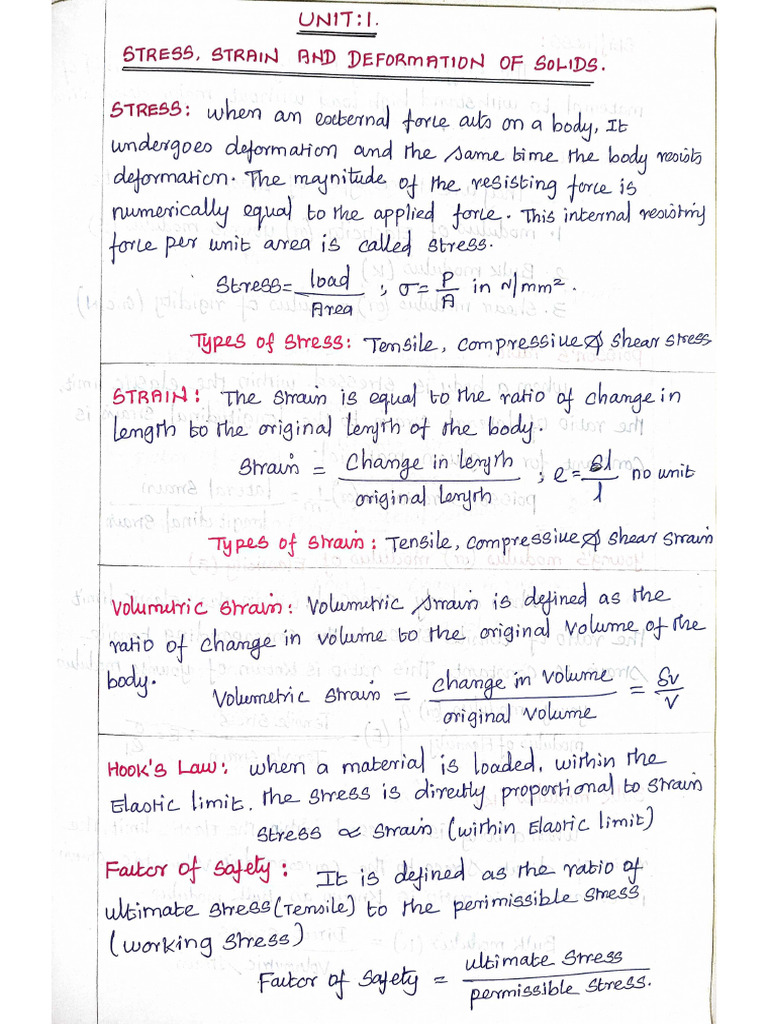 UNIT:1.
STRESS, STRAIN AND DEFORMATION OF SOLIDS.
STRESS: when an external force acts on a body, It
undergoes deformation and the same time the body resists
deformation. The magnitude of the resisting force is
numerically equal to the applied force. This internal resisting
force per unit area is called stress.
Stress = load / Area ; σ = P / A in N/mm².
Types of stress: Tensile, compressive & shear stress
STRAIN: The strain is equal to the ratio of change in
length to the original length of the body.
Strain = Change in length / original length ; e = δl / l no unit
Types of strain: Tensile, compressive & shear strain
Volumetric strain: Volumetric strain is defined as the
ratio of change in volume to the original volume of the
body.
Volumetric strain = change in volume / original volume = δv / v
HOOK'S LAW: when a material is loaded, within the
Elastic limit, the stress is directly proportional to strain
stress ∝ strain (within Elastic limit)
Factor of safety: It is defined as the ratio of
ultimate stress (Tensile) to the perimissible stress
(working stress)
Factor of safety = ultimate stress / permissible stress.